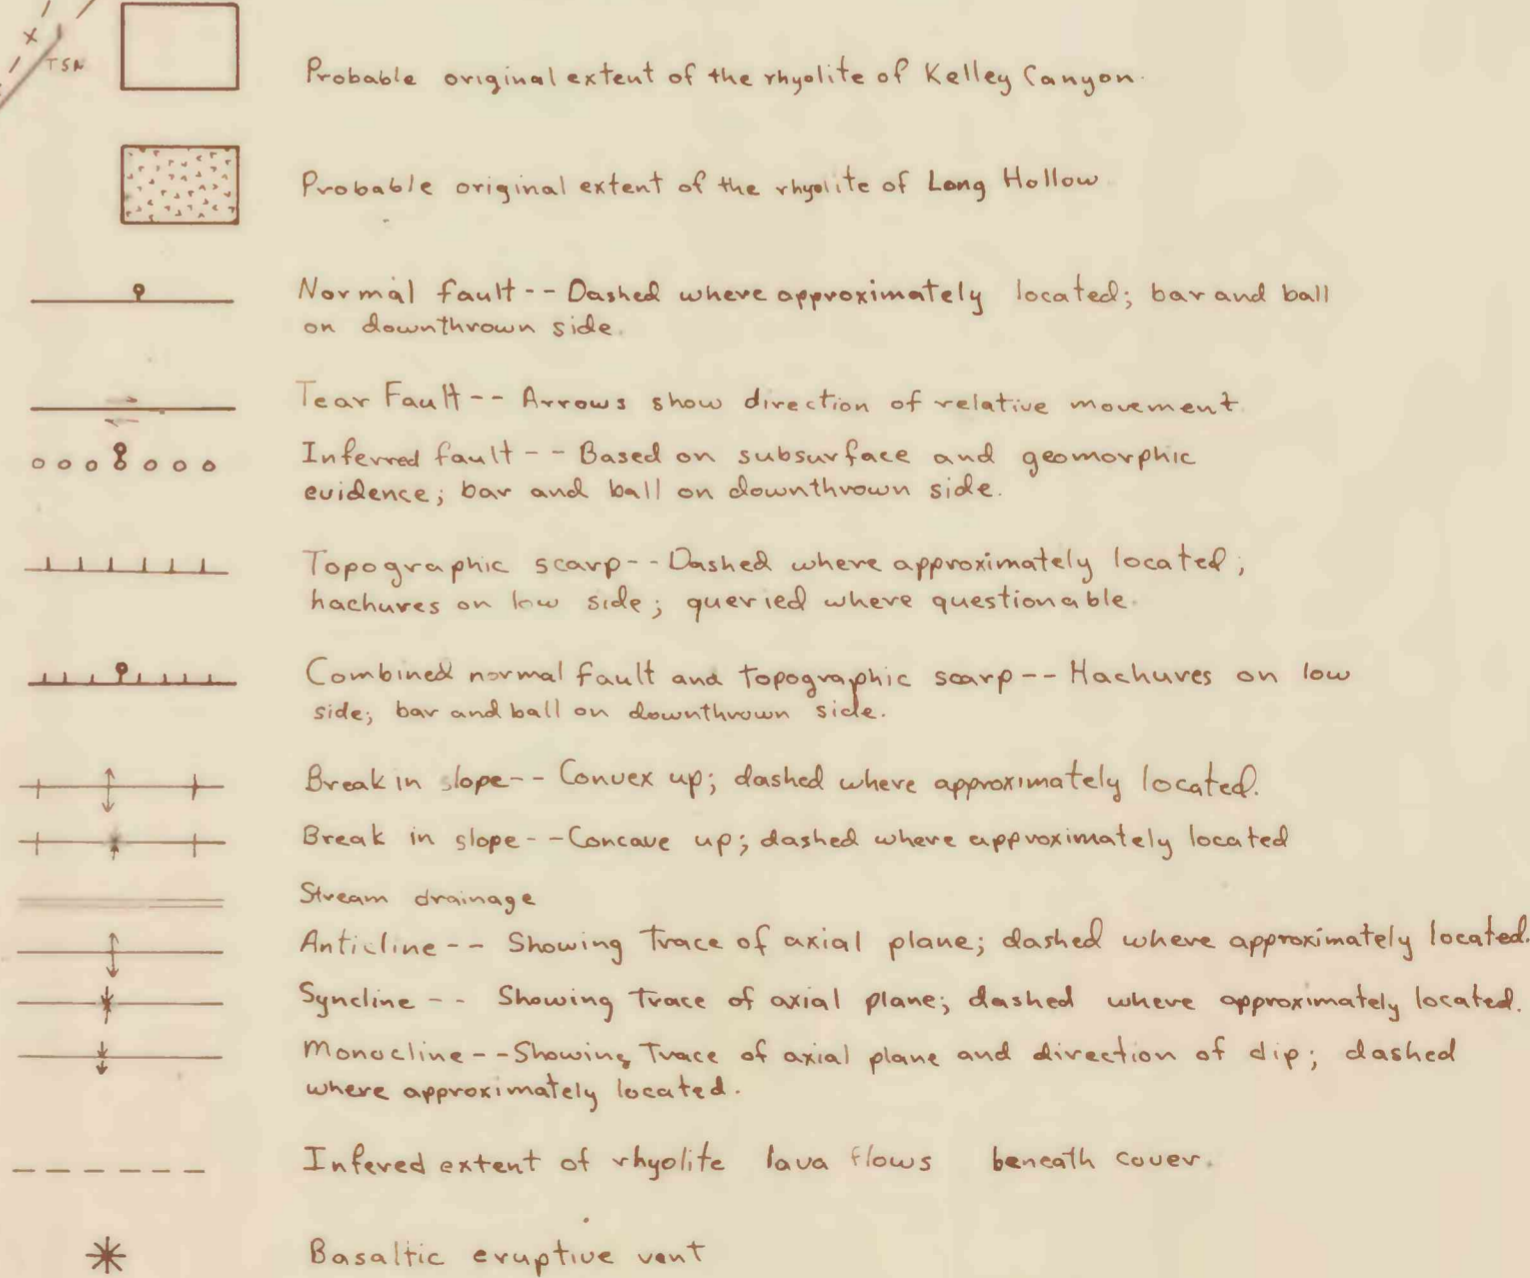 T5N
Probable original extent of the rhyolite of Kelley Canyon.
Probable original extent of the rhyolite of Long Hollow
Normal fault -- Dashed where approximately located; bar and ball
on downthrown side.
Tear Fault -- Arrows show direction of relative movement
Inferred fault -- Based on subsurface and geomorphic
evidence; bar and ball on downthrown side.
Topographic scarp -- Dashed where approximately located;
hachures on low side; queried where questionable.
Combined normal fault and topographic scarp -- Hachures on low
side; bar and ball on downthrown side.
Break in slope -- Convex up; dashed where approximately located.
Break in slope -- Concave up; dashed where approximately located
Stream drainage
Anticline -- Showing trace of axial plane; dashed where approximately located.
Syncline -- Showing trace of axial plane; dashed where approximately located.
Monocline -- Showing trace of axial plane and direction of dip; dashed
where approximately located.
Infered extent of rhyolite lava flows beneath cover.
Basaltic eruptive vent